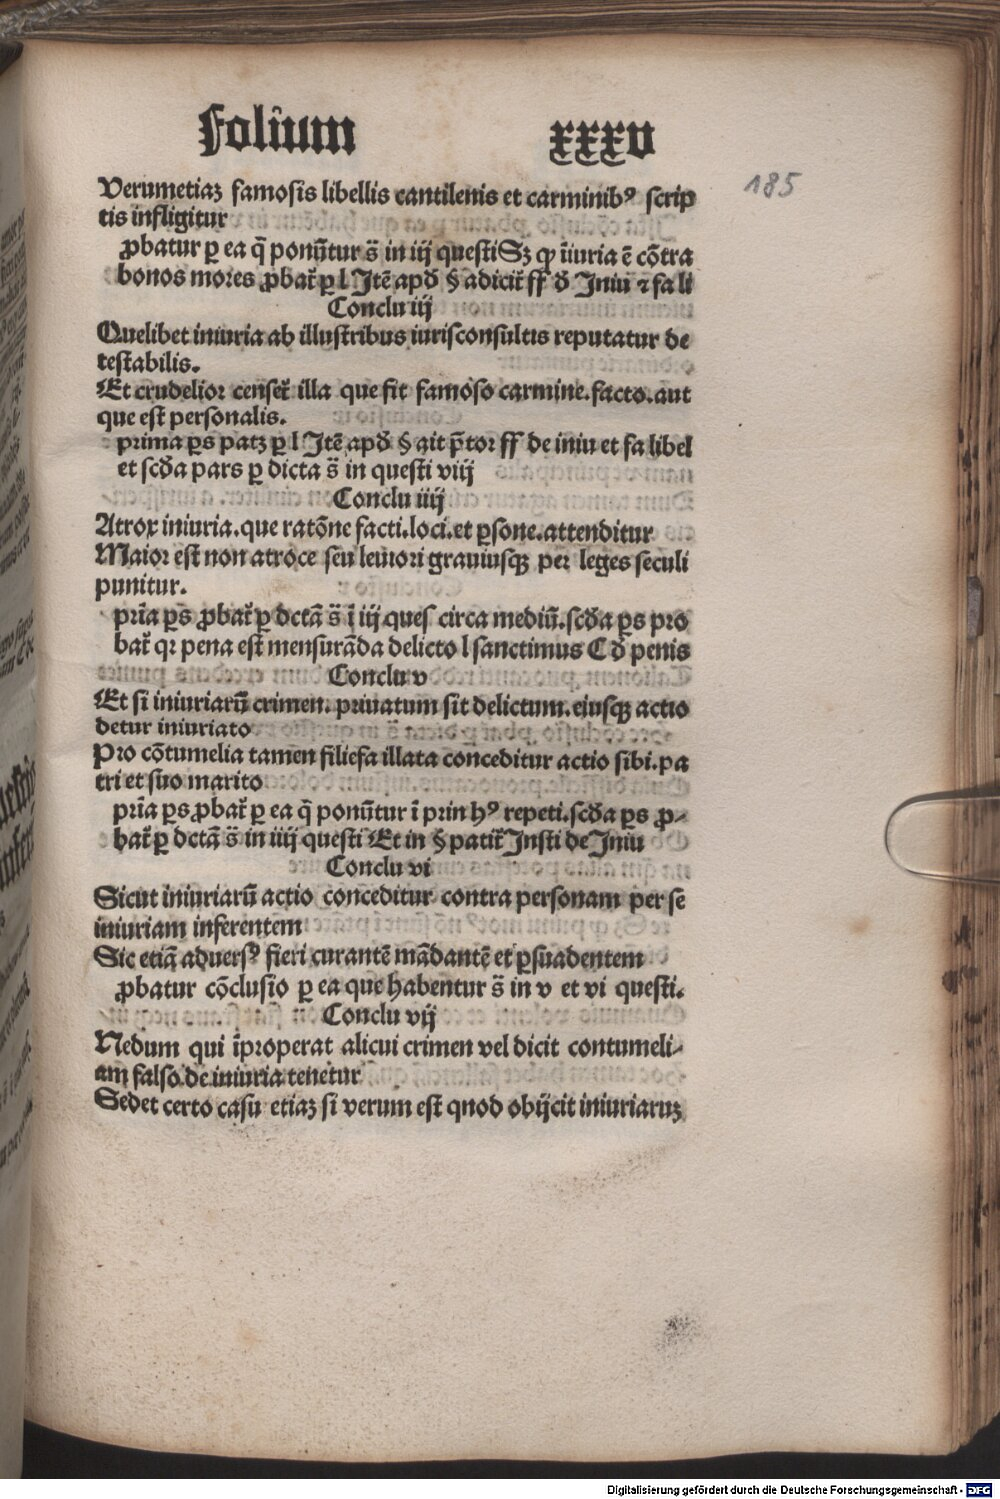 Foliuum xxxv
185
Verumetiaꝫ famosis libellis cantilenis et carminibꝰ scrip
tis infligitur
ꝓbatur ꝑ ea q̄ ponūtur s̄ in iij questi Sꝫ ꝙ īiuria ē cōtra
bonos mores ꝓbat̄ ꝑ l Itē apđ § adicit̄ ff đ Iniu ⁊ fa li
Conclu iij
Quelibet iniuria ab illustribus iurisconsultis reputatur de
testabilis.
Et crudelior censet̄ illa que fit famoso carmine.facto.aut
que est personalis.
prima ꝑs patꝫ ꝑ l Itē apđ § ait p̄tor ff de iniu et fa libel
et scđa pars ꝑ dicta s̄ in questi viij
Conclu iiij
Atrox iniuria.que ratōne facti.loci.et ꝑsone.attenditur
Maior est non atroce seu leuiori grauiusqꝫ per leges seculi
punitur.
prīa ꝑs ꝓbat̄ ꝑ dctā s̄ ī iij ques circa mediū.scđa ꝑs pro
bat̄ qꝛ pena est mensurāda delicto l sanctimus C đ penis
Conclu v
Et si iniuriarū crimen.priuatum sit delictum.eiusqꝫ actio
detur iniuriato
Pro cōtumelia tamen filiefa illata conceditur actio sibi.pa
tri et suo marito
prīa ꝑs ꝓbat̄ ꝑ ea q̄ ponūtur ī prin hꝰ repeti.scđa ꝑs ꝓ-
bat̄ ꝑ dctā s̄ in iiij questi Et in § patit̄ Insti de Iniu
Conclu vi
Sicut iniuriarū actio conceditur contra personam per se
iniuriam inferentem
Sic etiā aduersꝰ fieri curantē mādantē et ꝑsuadentem
ꝓbatur cōclusio ꝑ ea que habentur s̄ in v et vi questi.
Conclu vij
Nedum qui īproperat alicui crimen vel dicit contumeli-
am falso.de iniuria tenetur
Sedet certo casu etiaꝫ si verum est quod obijcit iniuriaruꝫ
Digitalisierung gefördert durch die Deutsche Forschungsgemeinschaft - DFG